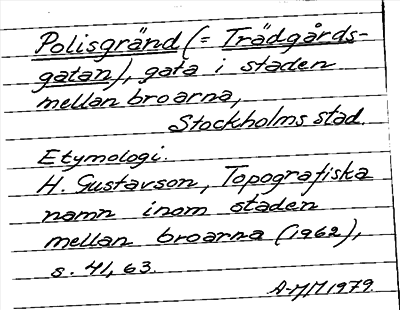 Polisgränd (= Trädgårds-
gatan), gata i staden
mellan broarna,
Stockholms stad.
Etymologi.
H. Gustavson, Topografiska
namn inom staden
mellan broarna (1962),
s. 41, 63.
A-MM 1979.